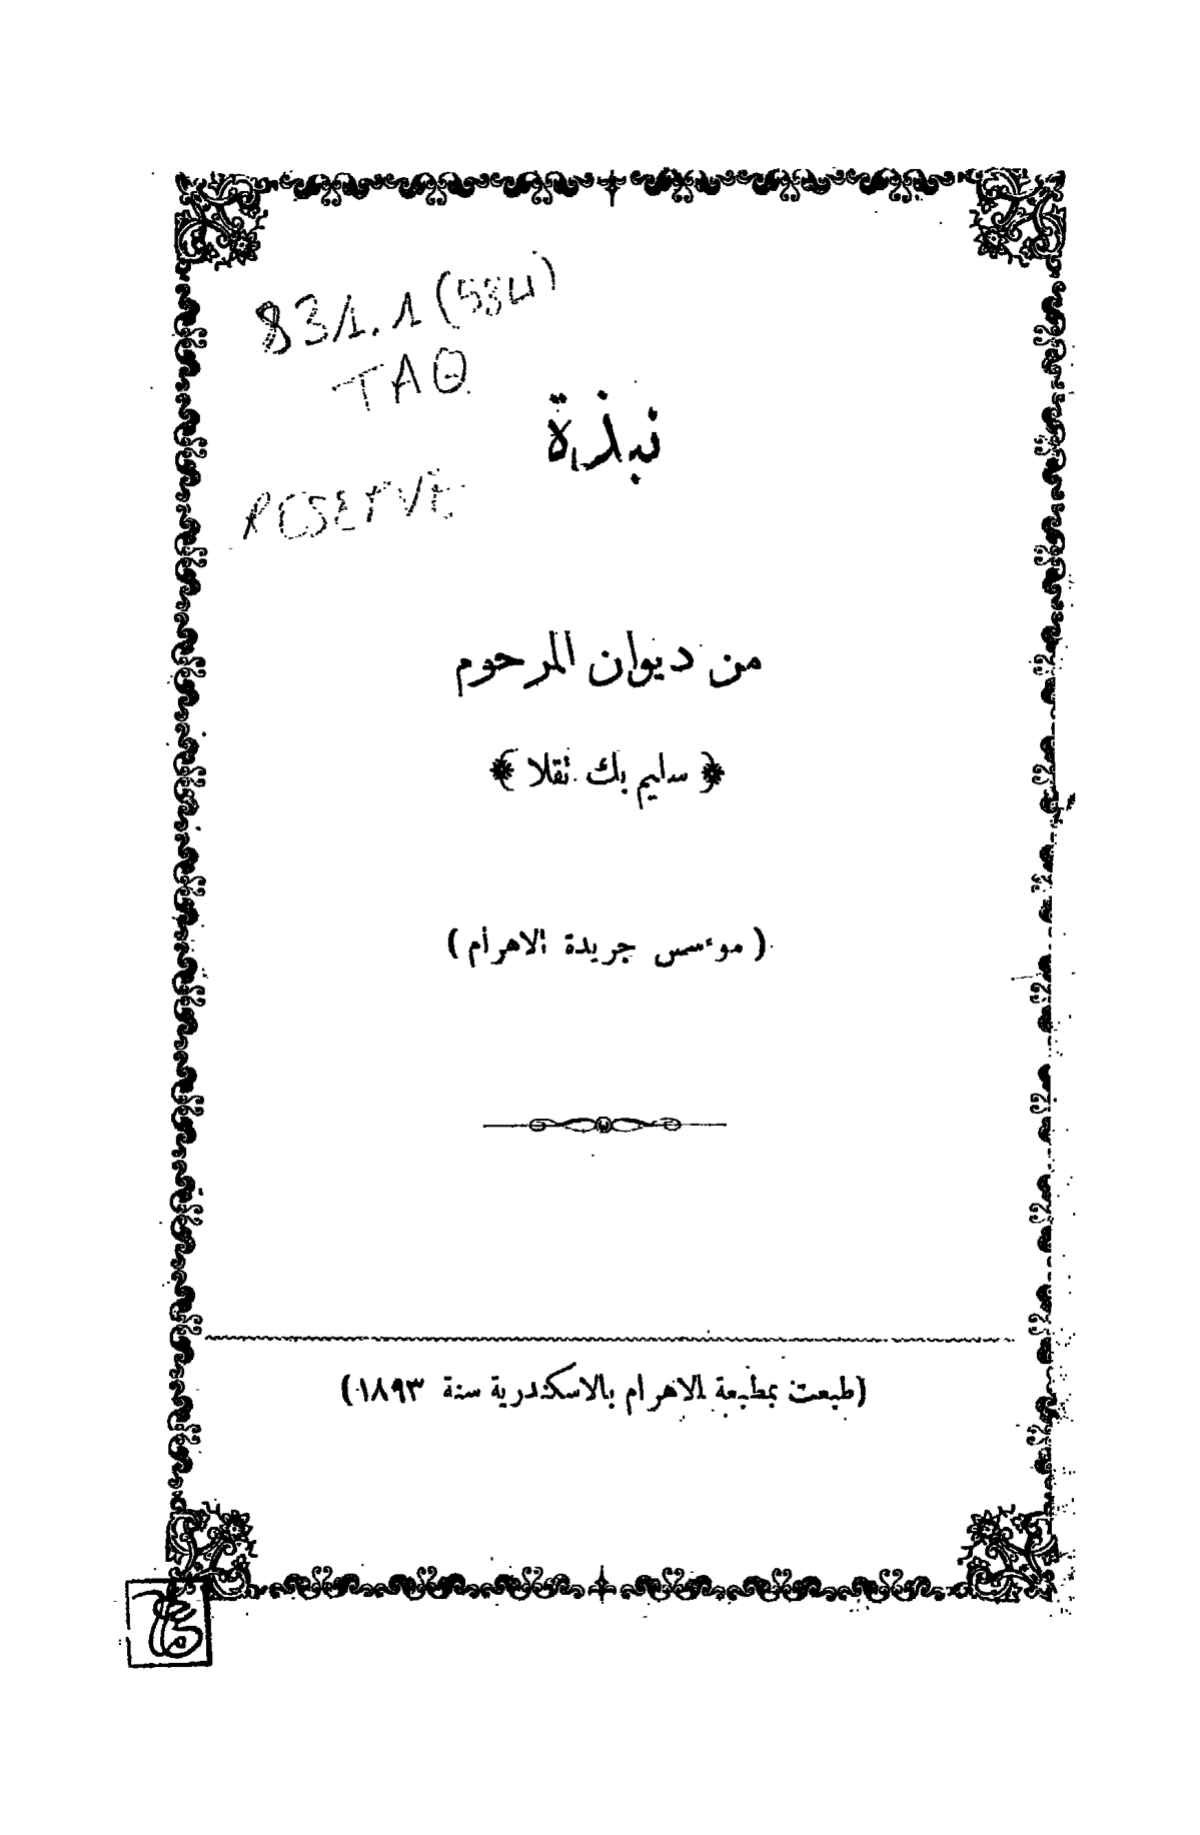 831.1 (534)
TAQ
نبذة
RESERVE
من ديوان المرحوم
﴿ سليم بك تقلا ﴾
( موءسس جريدة الاهرام )
(طبعت بمطبعة الاهرام بالاسكندرية سنة ١٨٩٣)